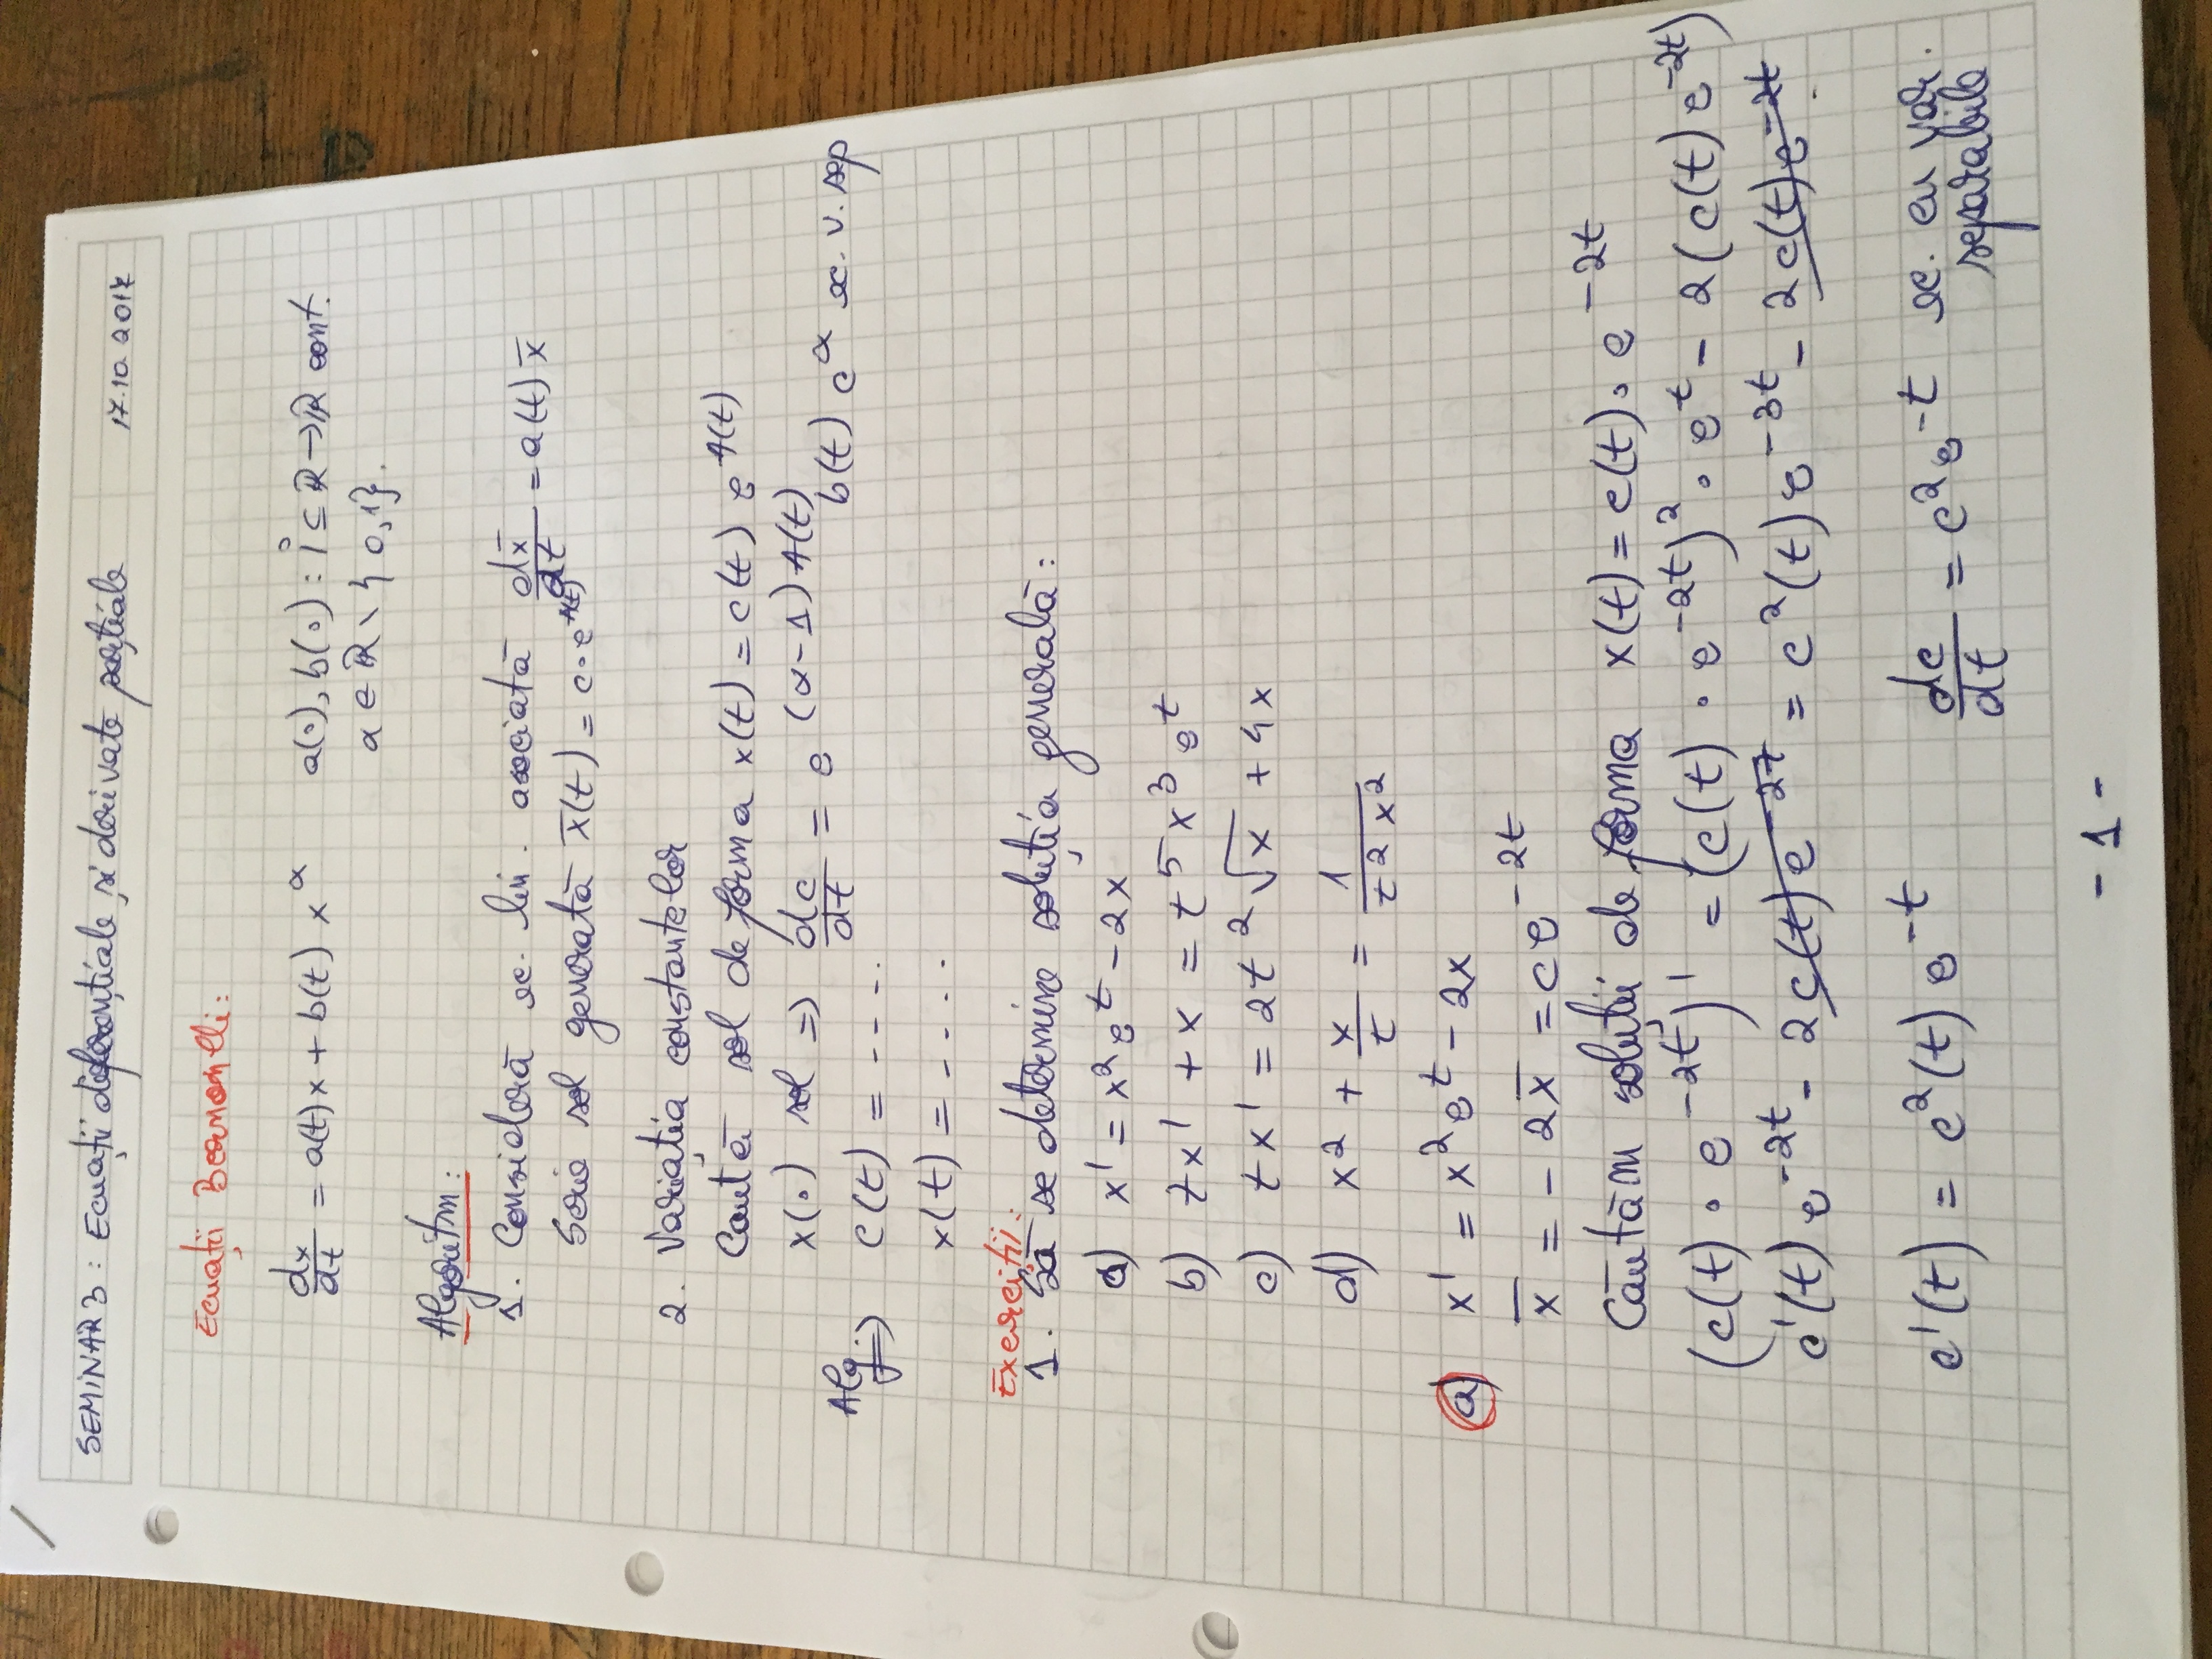 SEMINAR 3 : Ecuații diferențiale și derivate parțiale 17.10.2017
Ecuații Bernoulli:
dx/dt = a(t)x + b(t) x^α a(·), b(·) : I ⊆ ℝ → ℝ cont.
α ∈ ℝ \ {0,1}.
Algoritm:
1. Consideră ec. lin. asociată dx̄/dt = a(t) x̄
Scrie sol generată x̄(t) = c·e^A(t)
2. Variația constantelor
Caută sol de forma x(t) = c(t) e^A(t)
x(·) sol => dc/dt = e^(α-1)A(t) b(t) c^α ec. v. sep
Alg. => c(t) = ----.
x(t) = ----.
Exerciții:
1. Să se determine soluția generală:
a) x' = x²e^t - 2x
b) tx' + x = t⁵x³e^t
c) tx' = 2t²√x + 4x
d) x² + x/t = 1/(t²x²)
a) x' = x²e^t - 2x
x̄ = - 2x̄ = ce^-2t
Căutăm soluții de forma x(t) = c(t)·e^-2t
(c(t)·e^-2t)' = (c(t)·e^-2t)²·e^t - 2(c(t)e^-2t)
c'(t)e^-2t - 2c(t)e^-2t = c²(t)e^-3t - 2c(t)e^-2t
c'(t) = c²(t)e^-t dc/dt = c²e^-t ec. cu var.
separabile
- 1 -